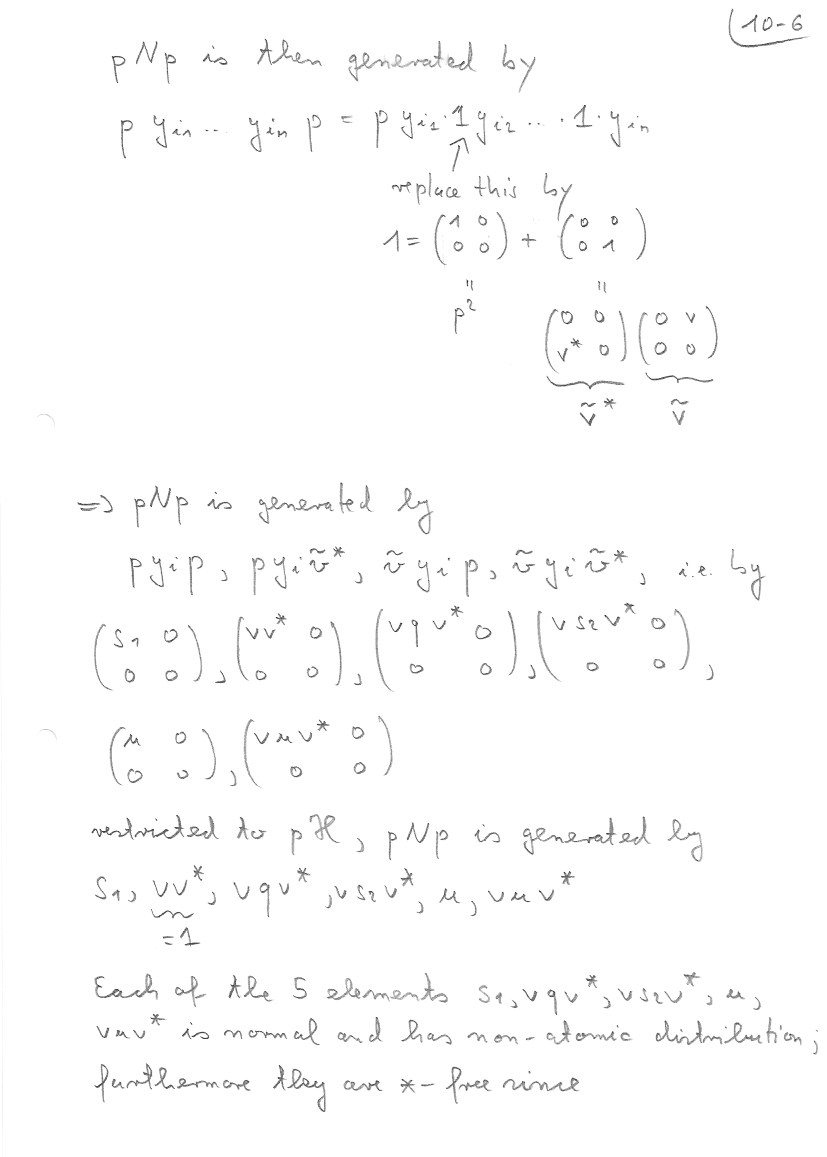 10-6
pNp is then generated by
p y_{i_1} ... y_{i_n} p = p y_{i_1} · 1 y_{i_2} ... · 1 · y_{i_n}
↑
replace this by
1 = (1 0; 0 0) + (0 0; 0 1)
= =
p² (0 0; v* 0) (0 v; 0 0)
ṽ* ṽ
=> pNp is generated by
p y_i p, p y_i ṽ*, ṽ y_i p, ṽ y_i ṽ*, i.e. by
(s_1 0; 0 0), (vv* 0; 0 0), (vqv* 0; 0 0), (vs_2v* 0; 0 0),
(u 0; 0 0), (vuv* 0; 0 0)
restricted to pℋ, pNp is generated by
s_1, vv*, vqv*, vs_2v*, u, vuv*
=1
Each of the 5 elements s_1, vqv*, vs_2v*, u,
vuv* is normal and has non-atomic distribution;
furthermore they are *-free since